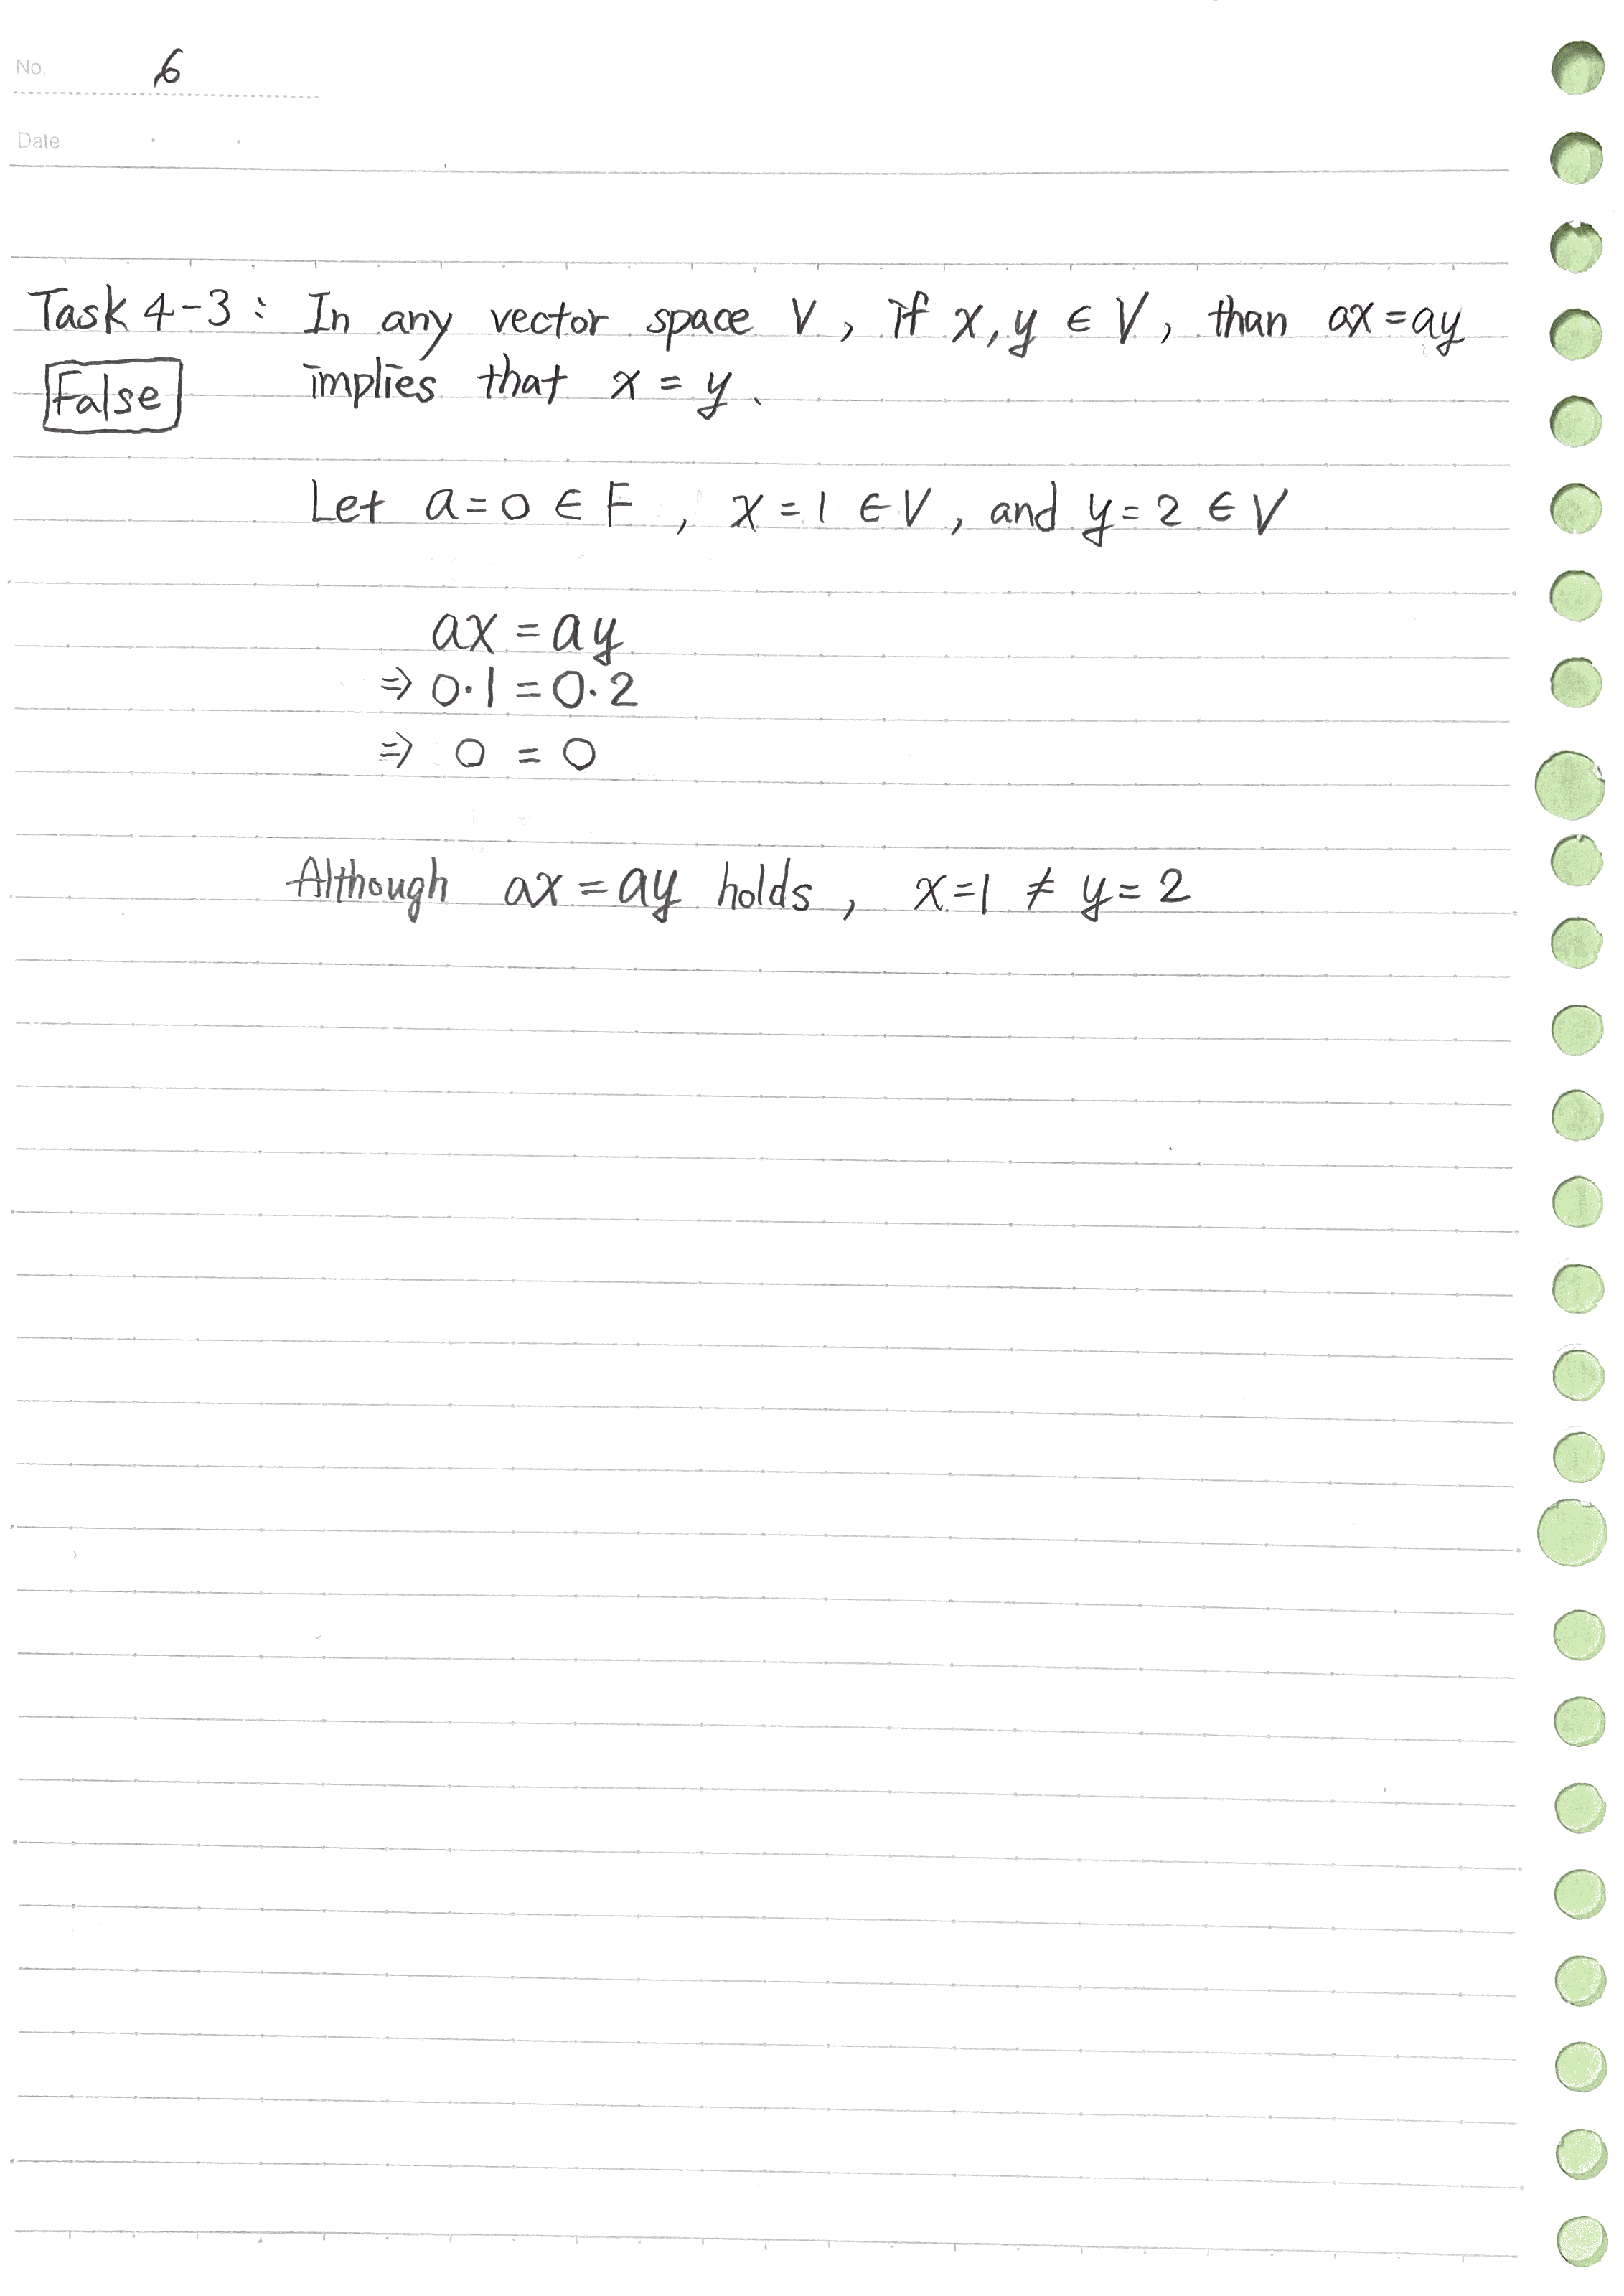 No. 6
Date
Task 4-3: In any vector space V, if x, y ∈ V, than ax=ay
False implies that x = y.
Let a=0 ∈ F, x=1 ∈ V, and y=2 ∈ V
ax = ay
⇒ 0·1 = 0·2
⇒ 0 = 0
Although ax = ay holds, x=1 ≠ y=2